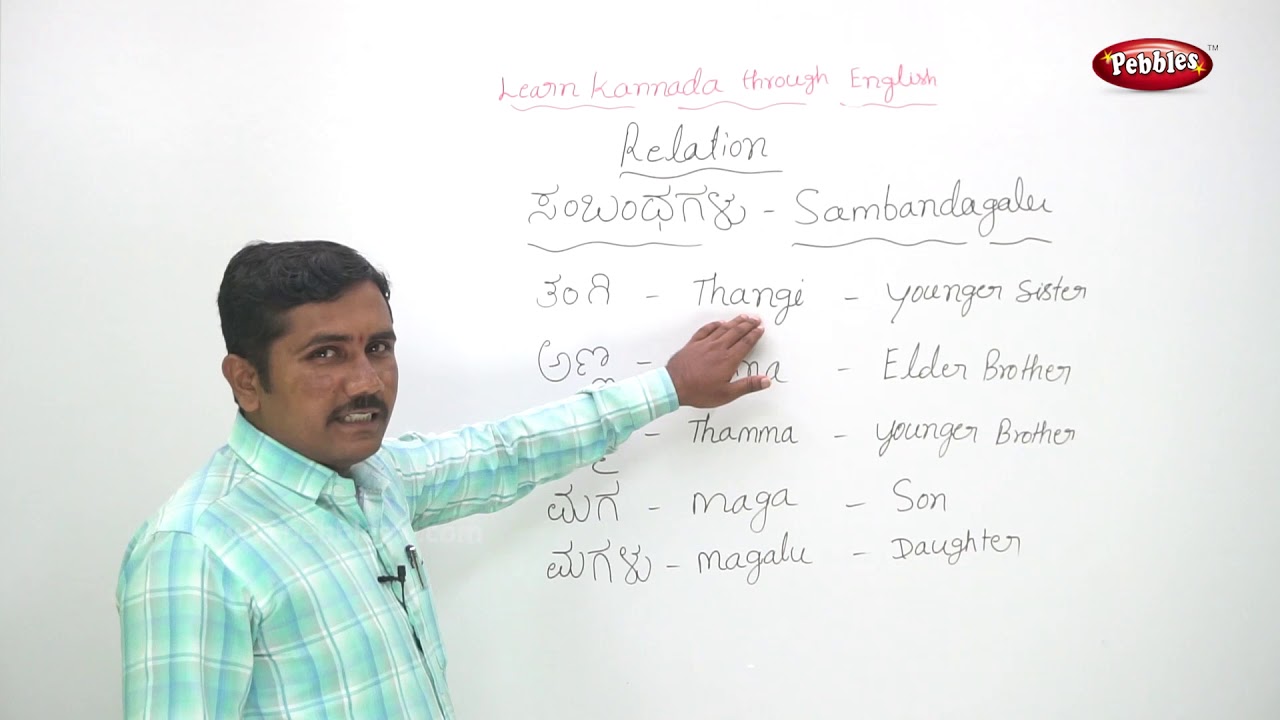 Pebbles™
Learn Kannada through English
Relation
ಸಂಬಂಧಗಳು - Sambandagalu
ತಂಗಿ - Thangi - younger Sister
ಅಣ್ಣ - - Elder Brother
- Thamma - younger Brother
ಮಗ - maga - Son
ಮಗಳು - magalu - Daughter